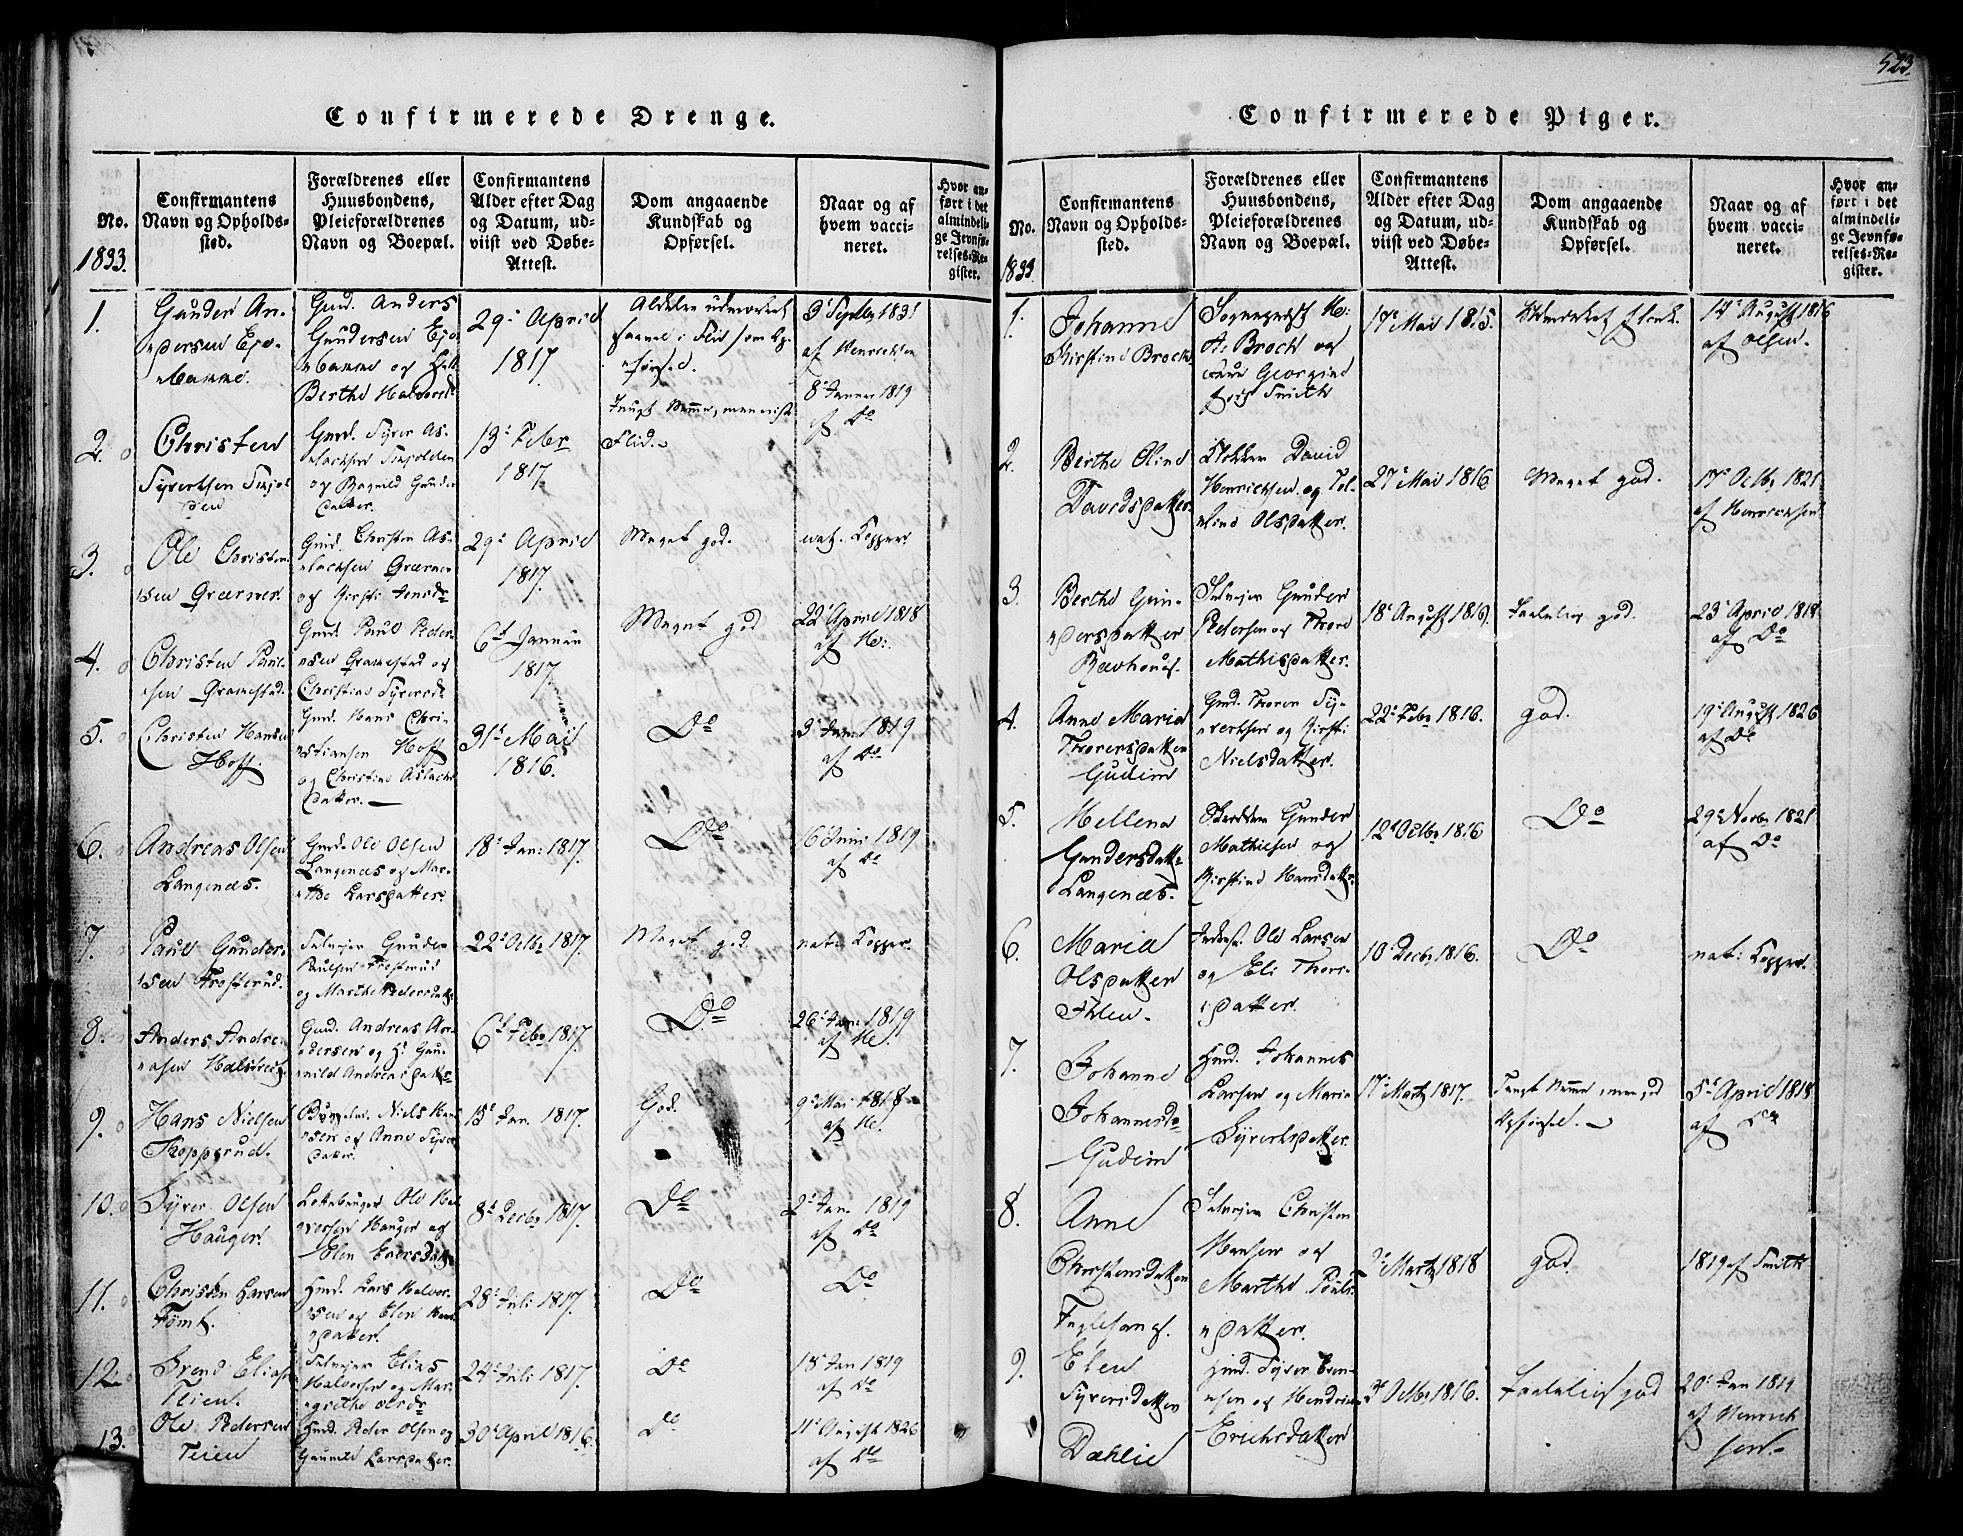 523.
Confirmerede Drenge.
No.
1833.
Confirmantens
Navn og Opholds-
sted.
Forældrenes eller
Huusbondens,
Pleieforældrenes
Navn og Boepæl.
Confirmantens
Alder efter Dag
og Datum, ud-
viist ved Døbe-
Attest.
Dom angaaende
Kundskab og
Opførsel.
Naar og af
hvem vacci-
neret.
Hvor an-
ført i det
almindeli-
ge Jevnfø-
relses-Re-
gister.
1.
Gunder An-
dersen
Gmd. Anders
Gundersen
og
Berthe Halvorsd.
29de April
1817
af Henricksen
2.
Christen
Syvertsen
Gmd. Syver As-
lacksen
og Gunder
datter.
13de Febr
1817
8de Januar 1819
af Do
3.
Ole Christen-
sen
Gmd. Christen As-
lacksen
og Kirsti Jensdr
29de April
1817.
Meget god.
nat. Kopper
4.
Christen Paul-
sen Gramestad.
Gmd. Paul Peder-
sen Gramestad og
Christine Syversdr
6te Januar
1817
Meget god
22de April 1818
af H:
5.
Christen Hansen
Hoff.
Gmd. Hans Chri-
stiansen Hoff
og Christine Aslachs
datter.
31te Mai
1816.
Do
3de Jan: 1819
af Do
6.
Andreas Olsen
Langenæs.
Gmd. Ole Olsen
Langenæs og Mar-
the Larsdatter.
18de Jan: 1817.
Do
16 Juni 1819
af Do
7.
Paul Gunder-
sen Frosterud.
Selveier Gunder
Paulsen Frosterud
og Marthe Pedersdatter
22de Octbr 1817
Meget god.
nat: Kopper.
8.
Anders Andre-
asen
Gmd. Andreas An-
dersen og Gun-
nild Andreasdatter
6te Febr 1817.
Do
26de Jan: 1819
af H.
9.
Hans Nielsen
Kopperud.
Niels Han-
sen og Anne Syver
datter.
15de Jan. 1817.
God.
9de Mai 1818
af H.
10.
Syver Olsen
Hauger.
Ole Hal-
vorsen Hauger og
Elen Eversdatter
8de Decbr 1817.
Do
2de Jan. 1819
af Do
11.
Christen Larsen
Tomt.
Hmd. Lars Halvor-
sen og Elen Hans
datter.
28de Juli 1817.
Do
Do
12.
Svend Elias
Teien.
Selveier Elias
Halvorsen og Mar-
grethe Olsdr
24de Juli 1817.
Do
18de Jan 1819
af Do
13.
Ole Pedersen
Teien
Hmd. Peder Olsen og
Gunnild Larsdatter.
30de April 1816.
Do
11te August 1826
af Do
Confirmerede Piger.
No.
1833
Confirmantens
Navn og Opholds-
sted.
Forældrenes eller
Huusbondens,
Pleieforældrenes
Navn og Boepæl.
Confirmantens
Alder efter Dag
og Datum, ud-
viist ved Døbe-
Attest.
Dom angaaende
Kundskab og
Opførsel.
Naar og af
hvem vacci-
neret.
Hvor an-
ført i det
almindeli-
ge Jevnfø-
relses-Re-
gister.
1.
Johanne
Kirstine Brock
Sogneprest H:
A: Brock og
Frue Georgine
født Smith
17de Mai 1815.
Udmærket flink.
14de August 1816
af Olsen.
2.
Berthe Oline
Davidsdatter.
Klokker David
Henricksen og
Olsdatter.
27de Mai 1816
Meget god.
17de Octbr 1821
af Henricksen
3.
Berthe Gun-
dersdatter
Ravhoug.
Selveier Gunder
Pedersen og Thore
Mathisdatter.
18de August 1816.
Taalelig god.
23de April 1818
af Do
4.
Anne Maria
Thorersdatter
Gudim
Gmd. Thorer Sy-
vertsen og Kirsti
Nielsdatter.
22de Febr 1816.
god.
19de August 1826
af Do
5.
Mellena
Gundersdatter
Langenæs.
Skredder Gunder
Mathiesen og
Kirstine Hansdatter
12te Octbr 1816
Do
29de Novbr 1821
af Do
6.
Maria
Olsdatter
Ihlen.
Inderst. Ole Larsen
og Eli Thors-
datter.
10de Decbr 1816.
Do
nat: Kopper.
7.
Johanne
Johannesdr
Gudim
Hmd. Johannes
Larsen og Maria
Syvertsdatter.
17de Marts 1817.
Svagt Nemme, men god
Opførsel.
5te April 1818
af Do
8.
Anne
Christensdatter
Fuglesang.
Selveier Christen
Hansen og
Marthe Pouls-
datter.
2de Marts 1818
god.
1819 af Smith
9.
Elen
Syversdatter
Dahlie
Hmd. Syver Even-
sen og Hendrine
Erichsdatter
3de Octbr 1816.
Taalelig god
20de Jan 1819
af Henrick
sen.